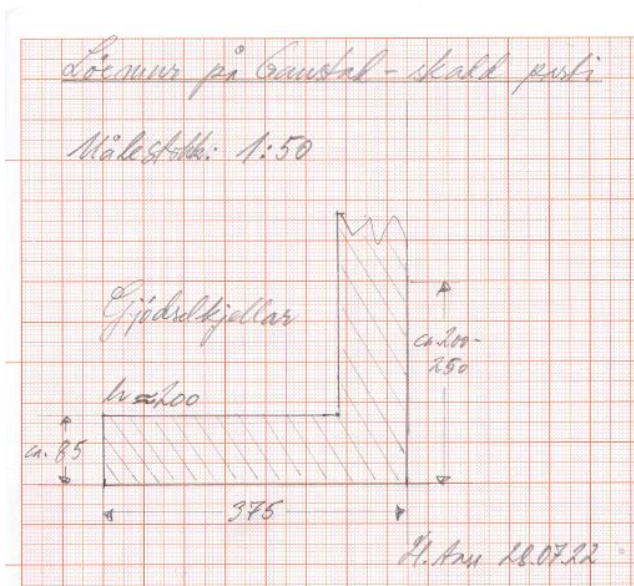 Löemur på Gaustad - skadd parti
Målestokk: 1:50
Gjödselkjellar
ca. 200-
250
h ≈ 200
ca. 85
375
28.07.22